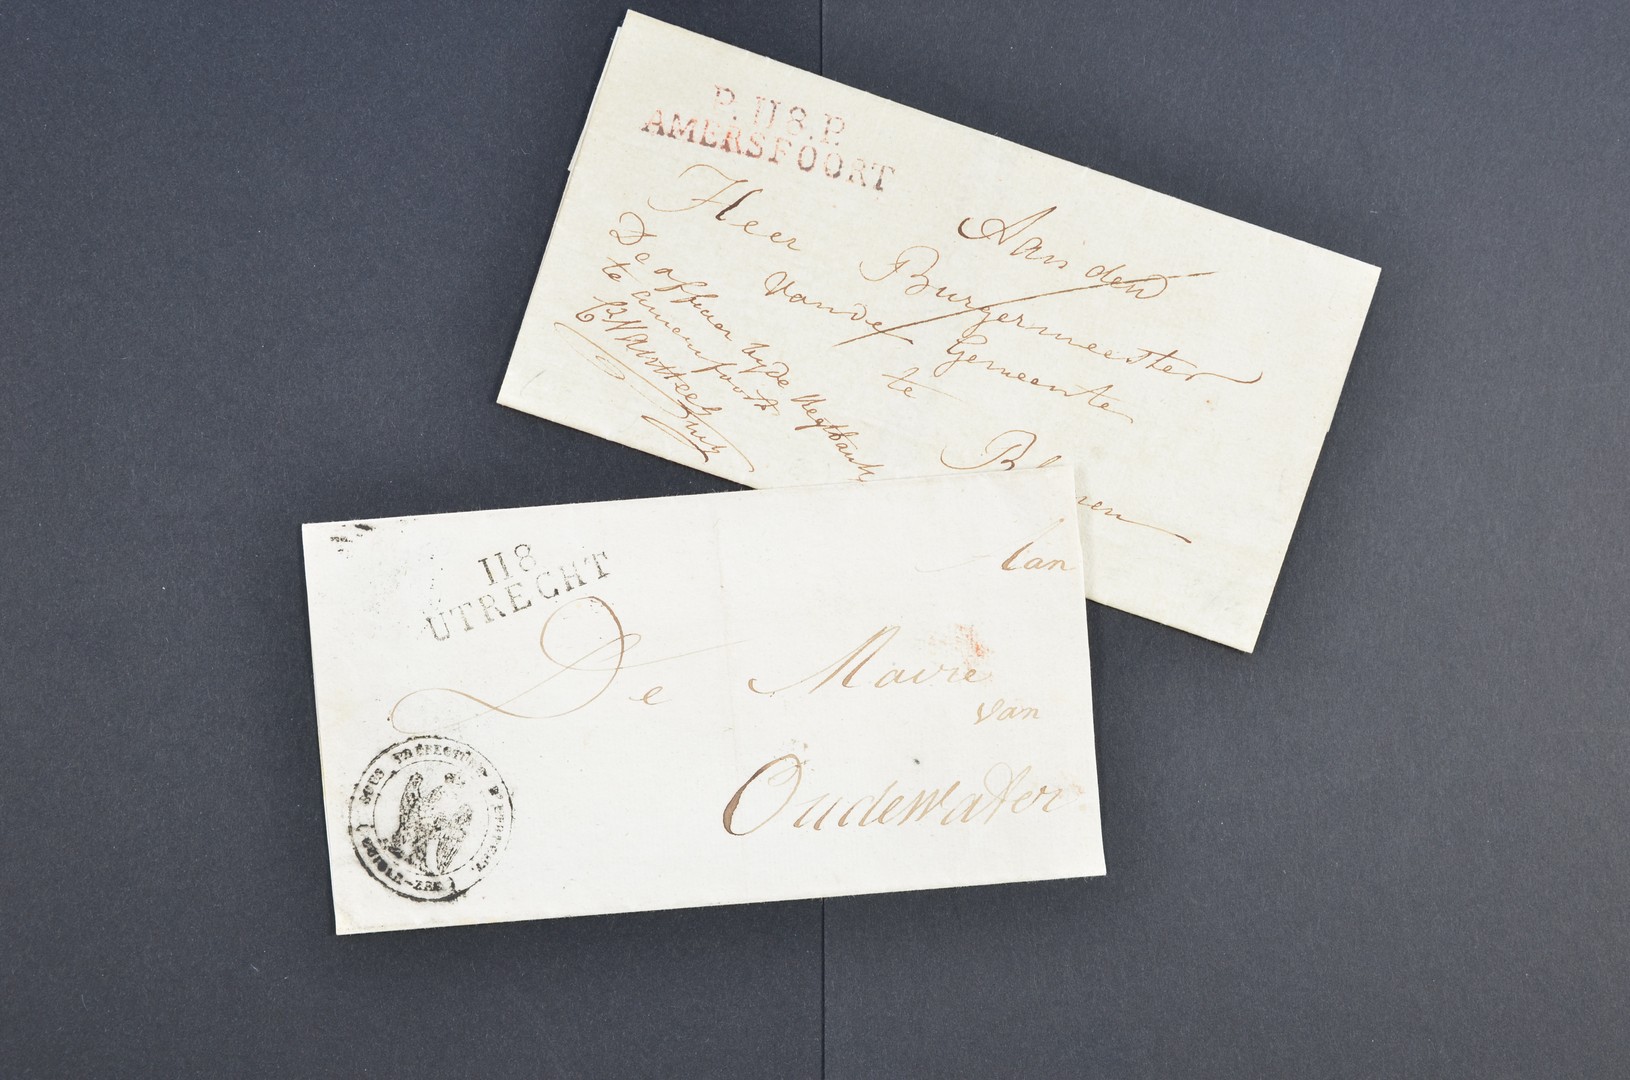 P.118.P.
AMERSFOORT
Aan den
Heer Burgermeester
van de Gemeente
te
De officier by de Regtbank
te Amersfoort
118
UTRECHT
Aan
De Maire
van
Oudewater
SOUS PREFECTURE D'UTRECHT.
(ZUIDER-ZEE)